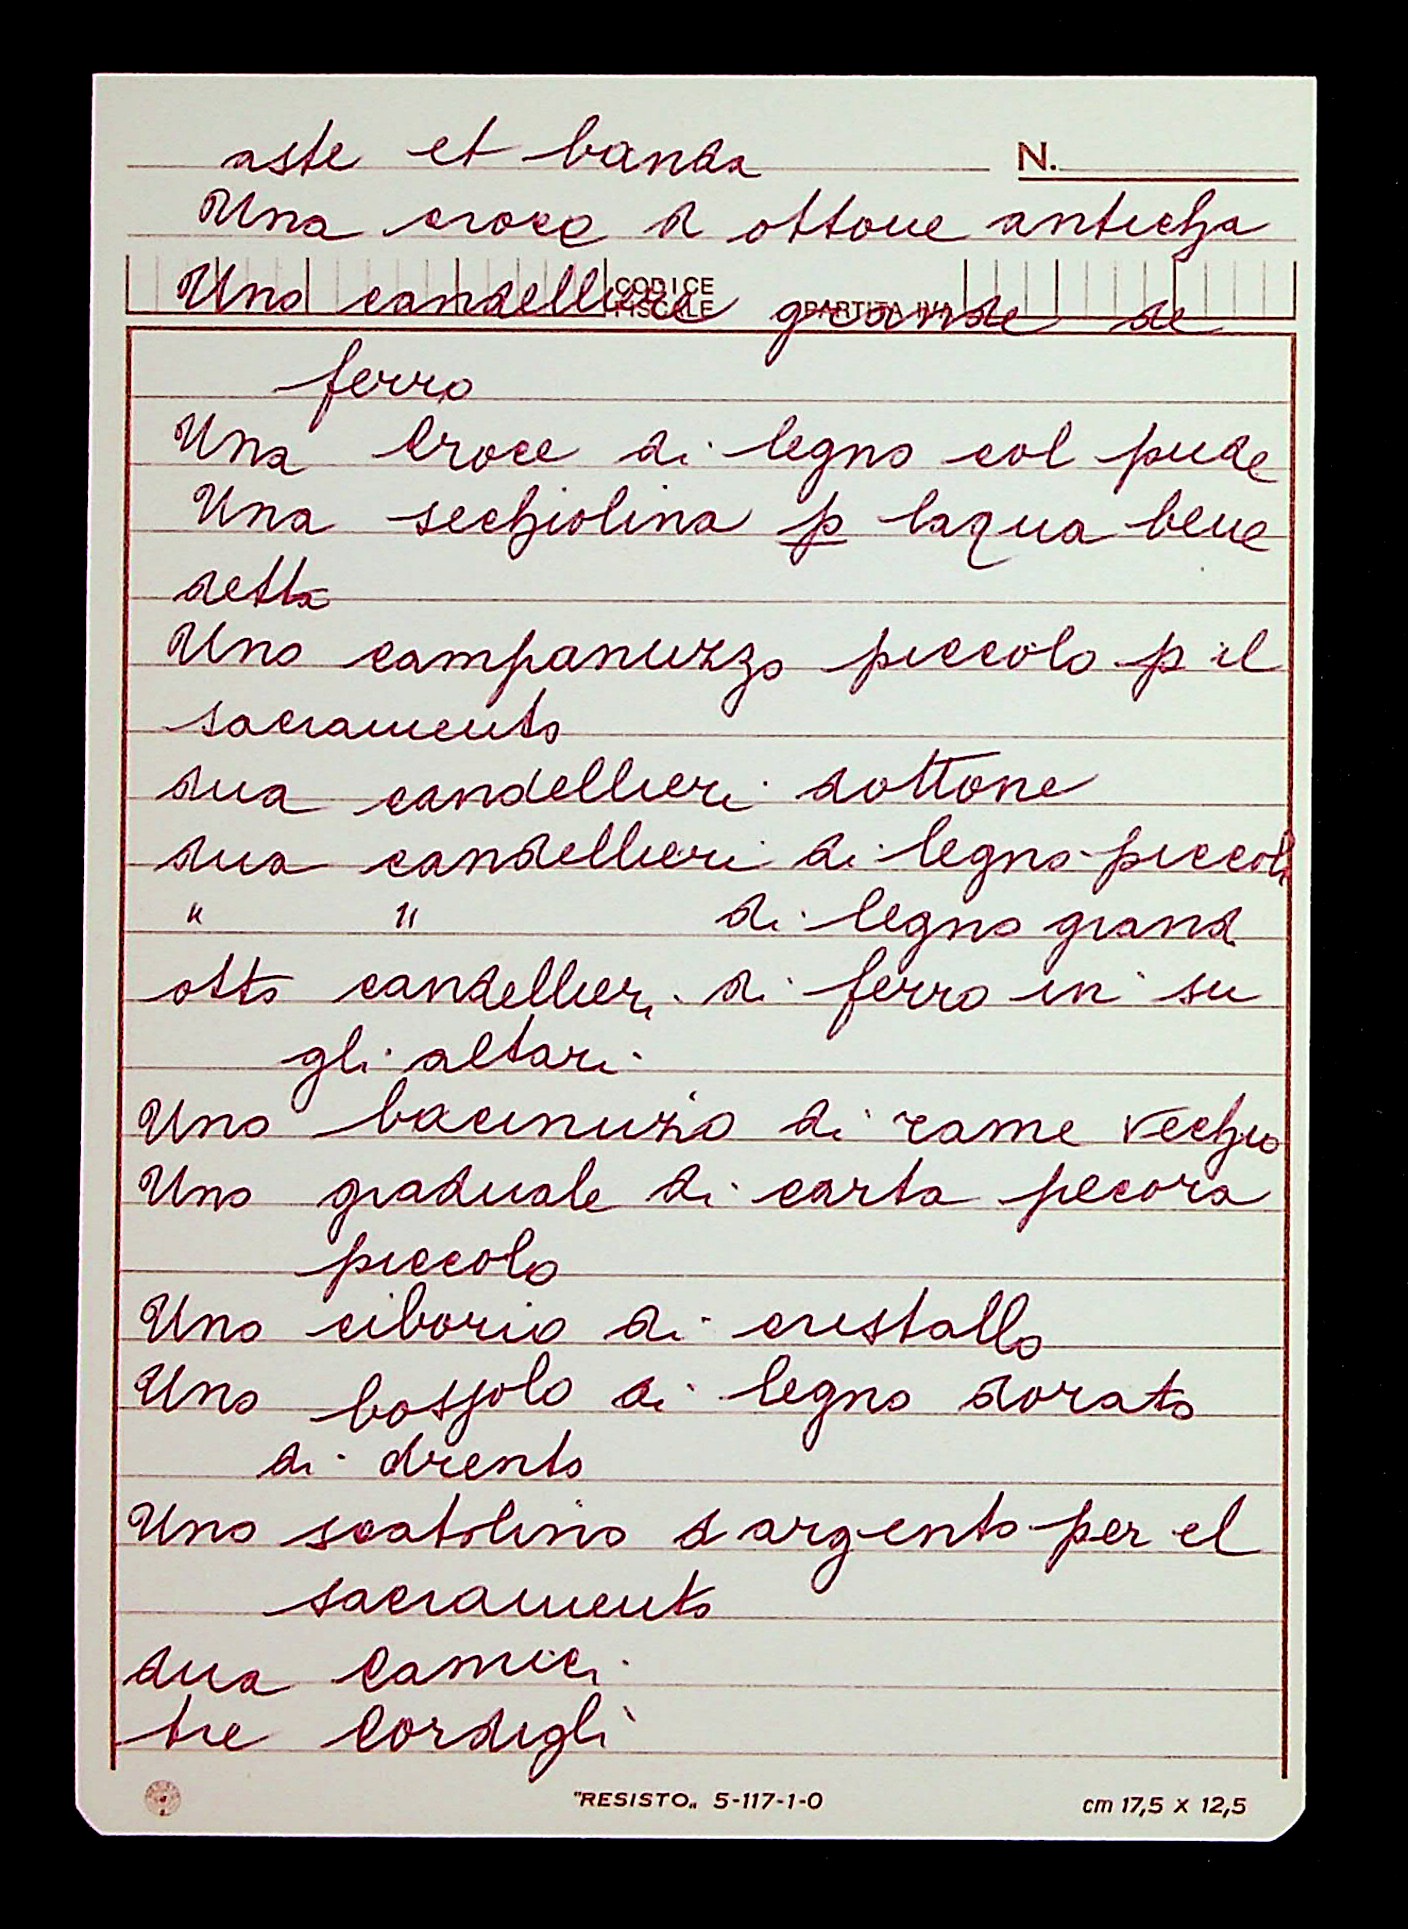 aste et banda
N.
Una croce d ottone anticha
Uno candelliere grande de
CODICE FISCALE PARTITA IVA
ferro
Una Croce di legno col piede
Una sechiolina p laqua bene
detta
Uno campanuzzo piccolo p il
sacramento
dua candellieri dottone
dua candellieri di legno piccoli
" " di legno grand
otto candellieri di ferro in su
gli altari
Uno bacinuzio di rame vechio
Uno graduale di carta pecora
piccolo
Uno ciborio di cristallo
Uno bossolo di legno dorato
di drento
Uno scatolino d argento per el
sacramento
dua Camici
tre Cordigli
"RESISTO" 5-117-1-0
cm 17,5 x 12,5